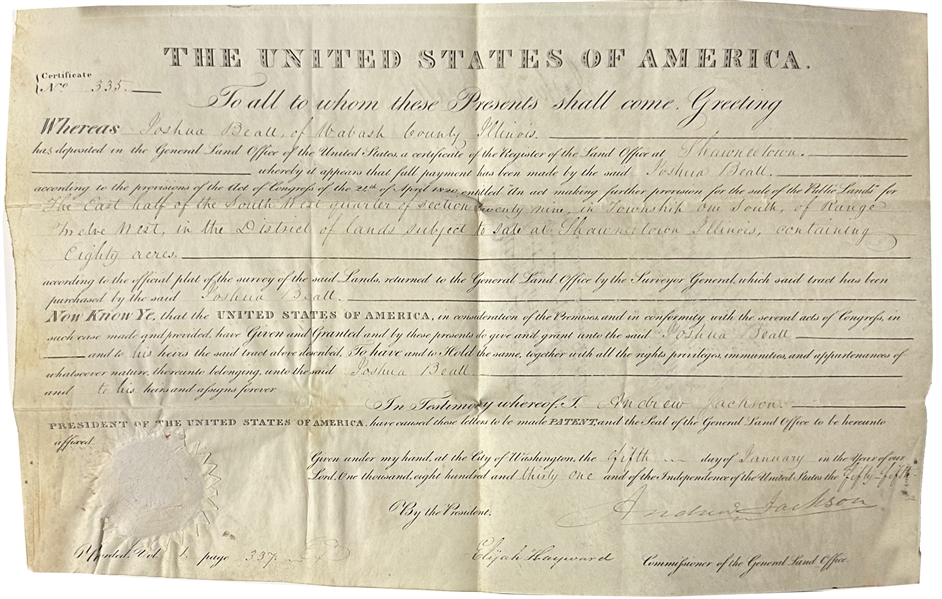 THE UNITED STATES OF AMERICA.
Certificate
No. 335.
To all to whom these Presents shall come, Greeting
Whereas Joshua Beall, of Wabash County Illinois.
has deposited in the General Land Office of the United States, a certificate of the Register of the Land Office at Shawneetown.
whereby it appears that full payment has been made by the said Joshua Beall.
according to the provisions of the Act of Congress of the 24th of April 1820, entitled "An act making further provision for the sale of the Public Lands" for
The East half of the South West quarter of section twenty nine, in Township one South, of Range
Twelve West, in the District of lands subject to sale at Shawneetown Illinois, containing
Eighty acres.
according to the official plat of the survey of the said Lands, returned to the General Land Office by the Surveyor General, which said tract has been
purchased by the said Joshua Beall.
Now Know Ye, that the UNITED STATES OF AMERICA, in consideration of the Premises, and in conformity with the several acts of Congress, in
such case made and provided, have Given and Granted and by these presents do give and grant unto the said Joshua Beall
and to his heirs the said tract above described, To have and to Hold the same, together with all the rights privileges, immunities, and appurtenances of
whatsoever nature, thereunto belonging, unto the said Joshua Beall
and to his heirs and assigns forever.
In Testimony whereof, I, Andrew Jackson.
PRESIDENT OF THE UNITED STATES OF AMERICA, have caused these letters to be made PATENT, and the Seal of the General Land Office to be hereunto
affixed.
Given under my hand, at the City of Washington, the fifth day of January in the Year of our
Lord, One thousand, eight hundred and thirty one and of the Independence of the United States the fifty-fifth
Andrew Jackson
By the President.
Recorded, Vol. page 337.
Elijah Hayward Commissioner of the General Land Office.